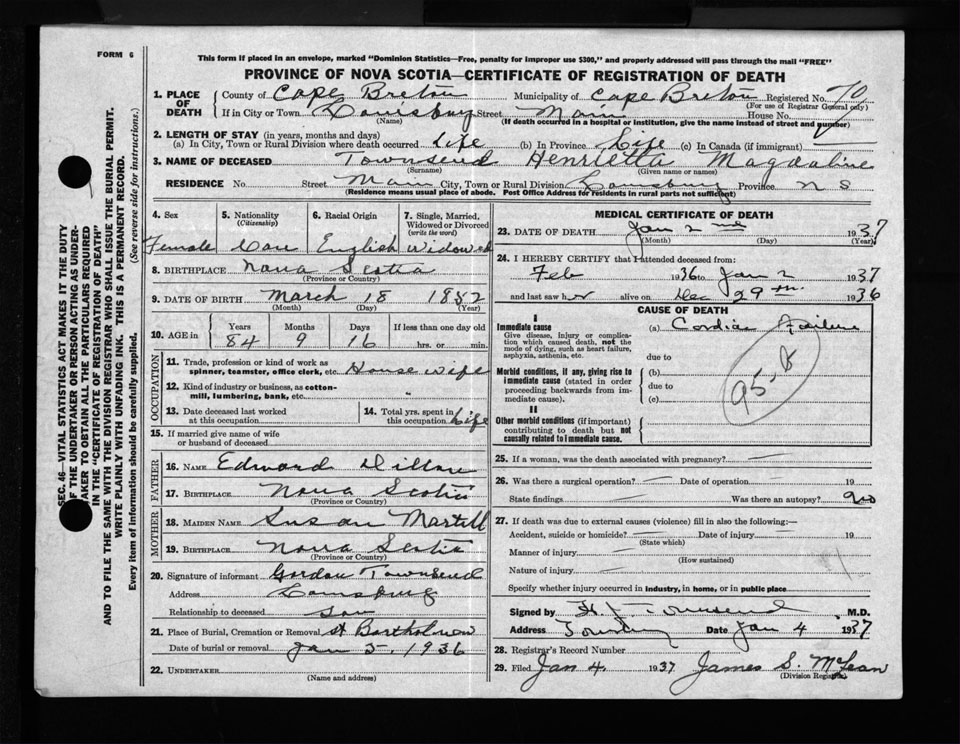 FORM 6
This form if placed in an envelope, marked "Dominion Statistics—Free, penalty for improper use $300," and properly addressed will pass through the mail "FREE"
PROVINCE OF NOVA SCOTIA—CERTIFICATE OF REGISTRATION OF DEATH
SEC. 46—VITAL STATISTICS ACT MAKES IT THE DUTY
OF THE UNDERTAKER OR PERSON ACTING AS UNDER-
TAKER TO OBTAIN ALL THE PARTICULARS REQUIRED
IN THE "CERTIFICATE OF REGISTRATION OF DEATH"
AND TO FILE THE SAME WITH THE DIVISION REGISTRAR WHO SHALL ISSUE THE BURIAL PERMIT.
WRITE PLAINLY WITH UNFADING INK. THIS IS A PERMANENT RECORD.
Every item of information should be carefully supplied. (See reverse side for instructions.)
1. PLACE OF DEATH County of Cape Breton Municipality of Cape Breton Registered No. 70
(For use of Registrar General only)
If in City or Town Louisburg Street Main House No.
(Name) (If death occurred in a hospital or institution, give the name instead of street and number)
2. LENGTH OF STAY (in years, months and days)
(a) In City, Town or Rural Division where death occurred Life (b) In Province Life (c) In Canada (if immigrant)
3. NAME OF DECEASED Townsend Henrietta Magdaline
(Surname) (Given name or names)
RESIDENCE No. Street Main City, Town or Rural Division Louisburg Province N S
(Residence means usual place of abode. Post Office Address for residents in rural parts not sufficient)
4. Sex 5. Nationality (Citizenship) 6. Racial Origin 7. Single, Married, Widowed or Divorced (write the word)
Female Can English Widowed
8. BIRTHPLACE Nova Scotia
(Province or Country)
9. DATE OF BIRTH March 18 1852
(Month) (Day) (Year)
10. AGE in Years Months Days If less than one day old
84 9 16 hrs. or min.
OCCUPATION
11. Trade, profession or kind of work as
spinner, teamster, office clerk, etc. House wife
12. Kind of industry or business, as cotton-
mill, lumbering, bank, etc.
13. Date deceased last worked at this occupation 14. Total yrs. spent in this occupation Life
15. If married give name of wife
or husband of deceased
FATHER
16. NAME Edward Dillon
17. BIRTHPLACE Nova Scotia
(Province or Country)
MOTHER
18. MAIDEN NAME Susan Martell
19. BIRTHPLACE Nova Scotia
(Province or Country)
20. Signature of informant Gordon Townsend
Address Louisburg
Relationship to deceased son
21. Place of Burial, Cremation or Removal St Bartholmew
Date of burial or removal Jan 5, 1936
22. UNDERTAKER
(Name and address)
MEDICAL CERTIFICATE OF DEATH
23. DATE OF DEATH Jan 2nd 1937
(Month) (Day) (Year)
24. I HEREBY CERTIFY that I attended deceased from:
Feb 1936 to Jan 2 1937
and last saw her alive on Dec 29th 1936
CAUSE OF DEATH
I
Immediate cause (a) Cardiac Failure
Give disease, injury or complica-
tion which caused death, not the
mode of dying, such as heart failure,
asphyxia, asthenia, etc. due to
Morbid conditions, if any, giving rise to (b)
immediate cause (stated in order due to
proceeding backwards from im-
mediate cause). (c)
95-B
II
Other morbid conditions (if important)
contributing to death but not
causally related to immediate cause.
25. If a woman, was the death associated with pregnancy?
26. Was there a surgical operation? Date of operation 19
State findings Was there an autopsy? No
27. If death was due to external causes (violence) fill in also the following:—
Accident, suicide or homicide? Date of injury 19
(State which)
Manner of injury
(How sustained)
Nature of injury
Specify whether injury occurred in industry, in home, or in public place
Signed by Townsend M.D.
Address Date Jan 4 1937
28. Registrar's Record Number
29. Filed Jan 4. 1937 James S. McLean
(Division Registrar)